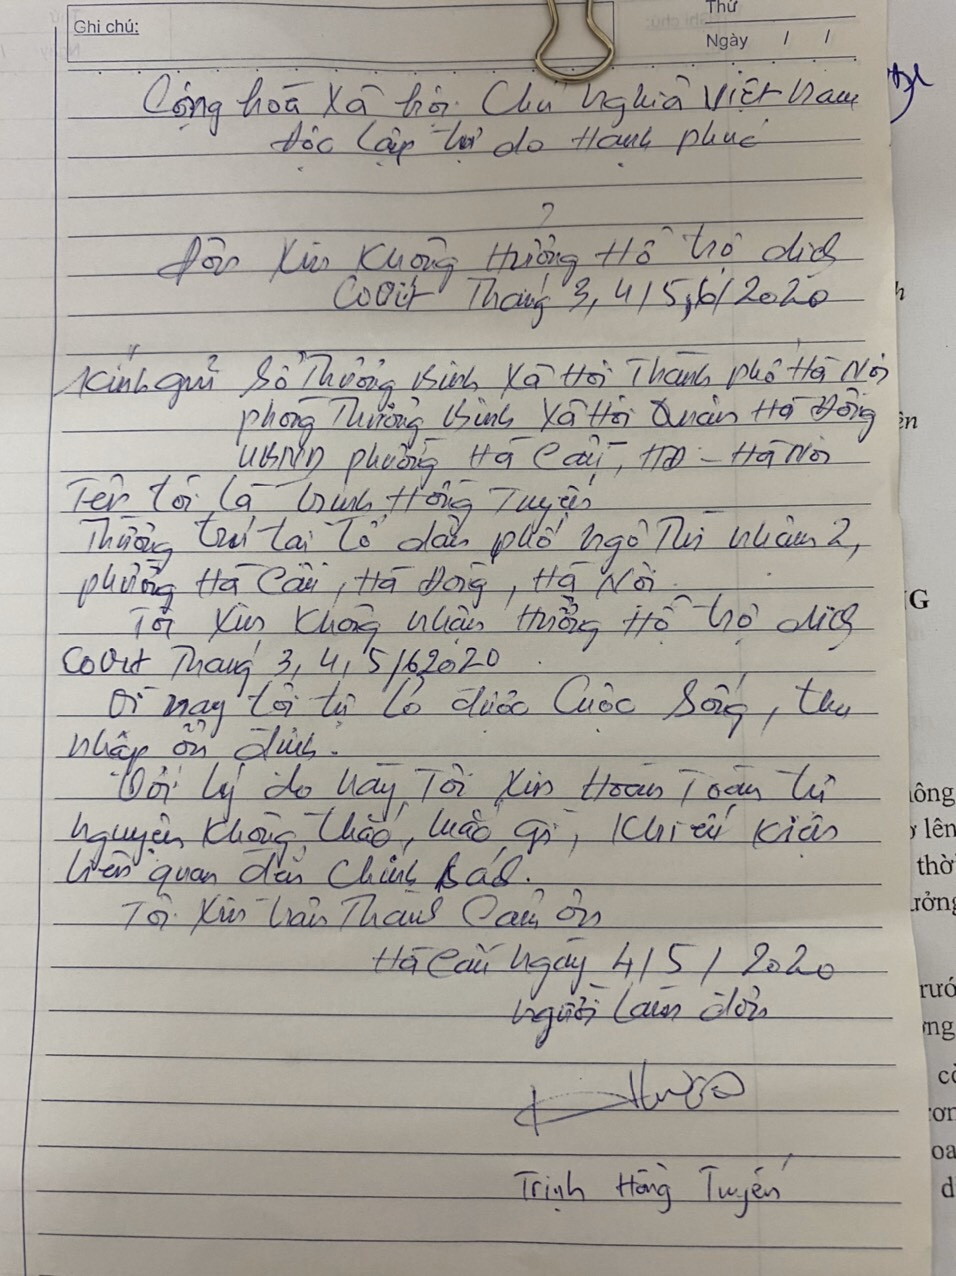 Ghi chú:
Thứ
Ngày / /
Cộng hoà Xã hội Chủ nghĩa Việt Nam
Độc lập tự do Hạnh phúc
Đơn Xin Không Hưởng Hỗ trợ dịch
Covit Tháng 3, 4/5,6/2020
Kính gửi Sở Thương Binh Xã Hội Thành phố Hà Nội
phòng Thương Binh Xã Hội Quận Hà Đông
UBND phường Hà Cầu, HĐ - Hà Nội
Tên tôi là Trịnh Hồng Tuyến
Thường trú tại Tổ dân phố Ngô Thì Nhậm 2,
phường Hà Cầu, Hà Đông, Hà Nội
Tôi Xin Không nhận Hưởng Hỗ trợ dịch
Covit Tháng 3, 4, 5/6 2020
Vì nay tôi tự lo được Cuộc Sống, thu
nhập ổn định.
Với lý do này Tôi Xin Hoàn Toàn tự
nguyện không thắc, mắc, gì, Khiếu Kiện
liên quan đến Chính sách.
Tôi Xin trân Thành Cảm ơn
Hà Cầu ngày 4/5/2020
người làm đơn
Trịnh Hồng Tuyến
ên
G
ông
lên
thờ
ưởng
rướ
ơng
cò
ơn
oa
d